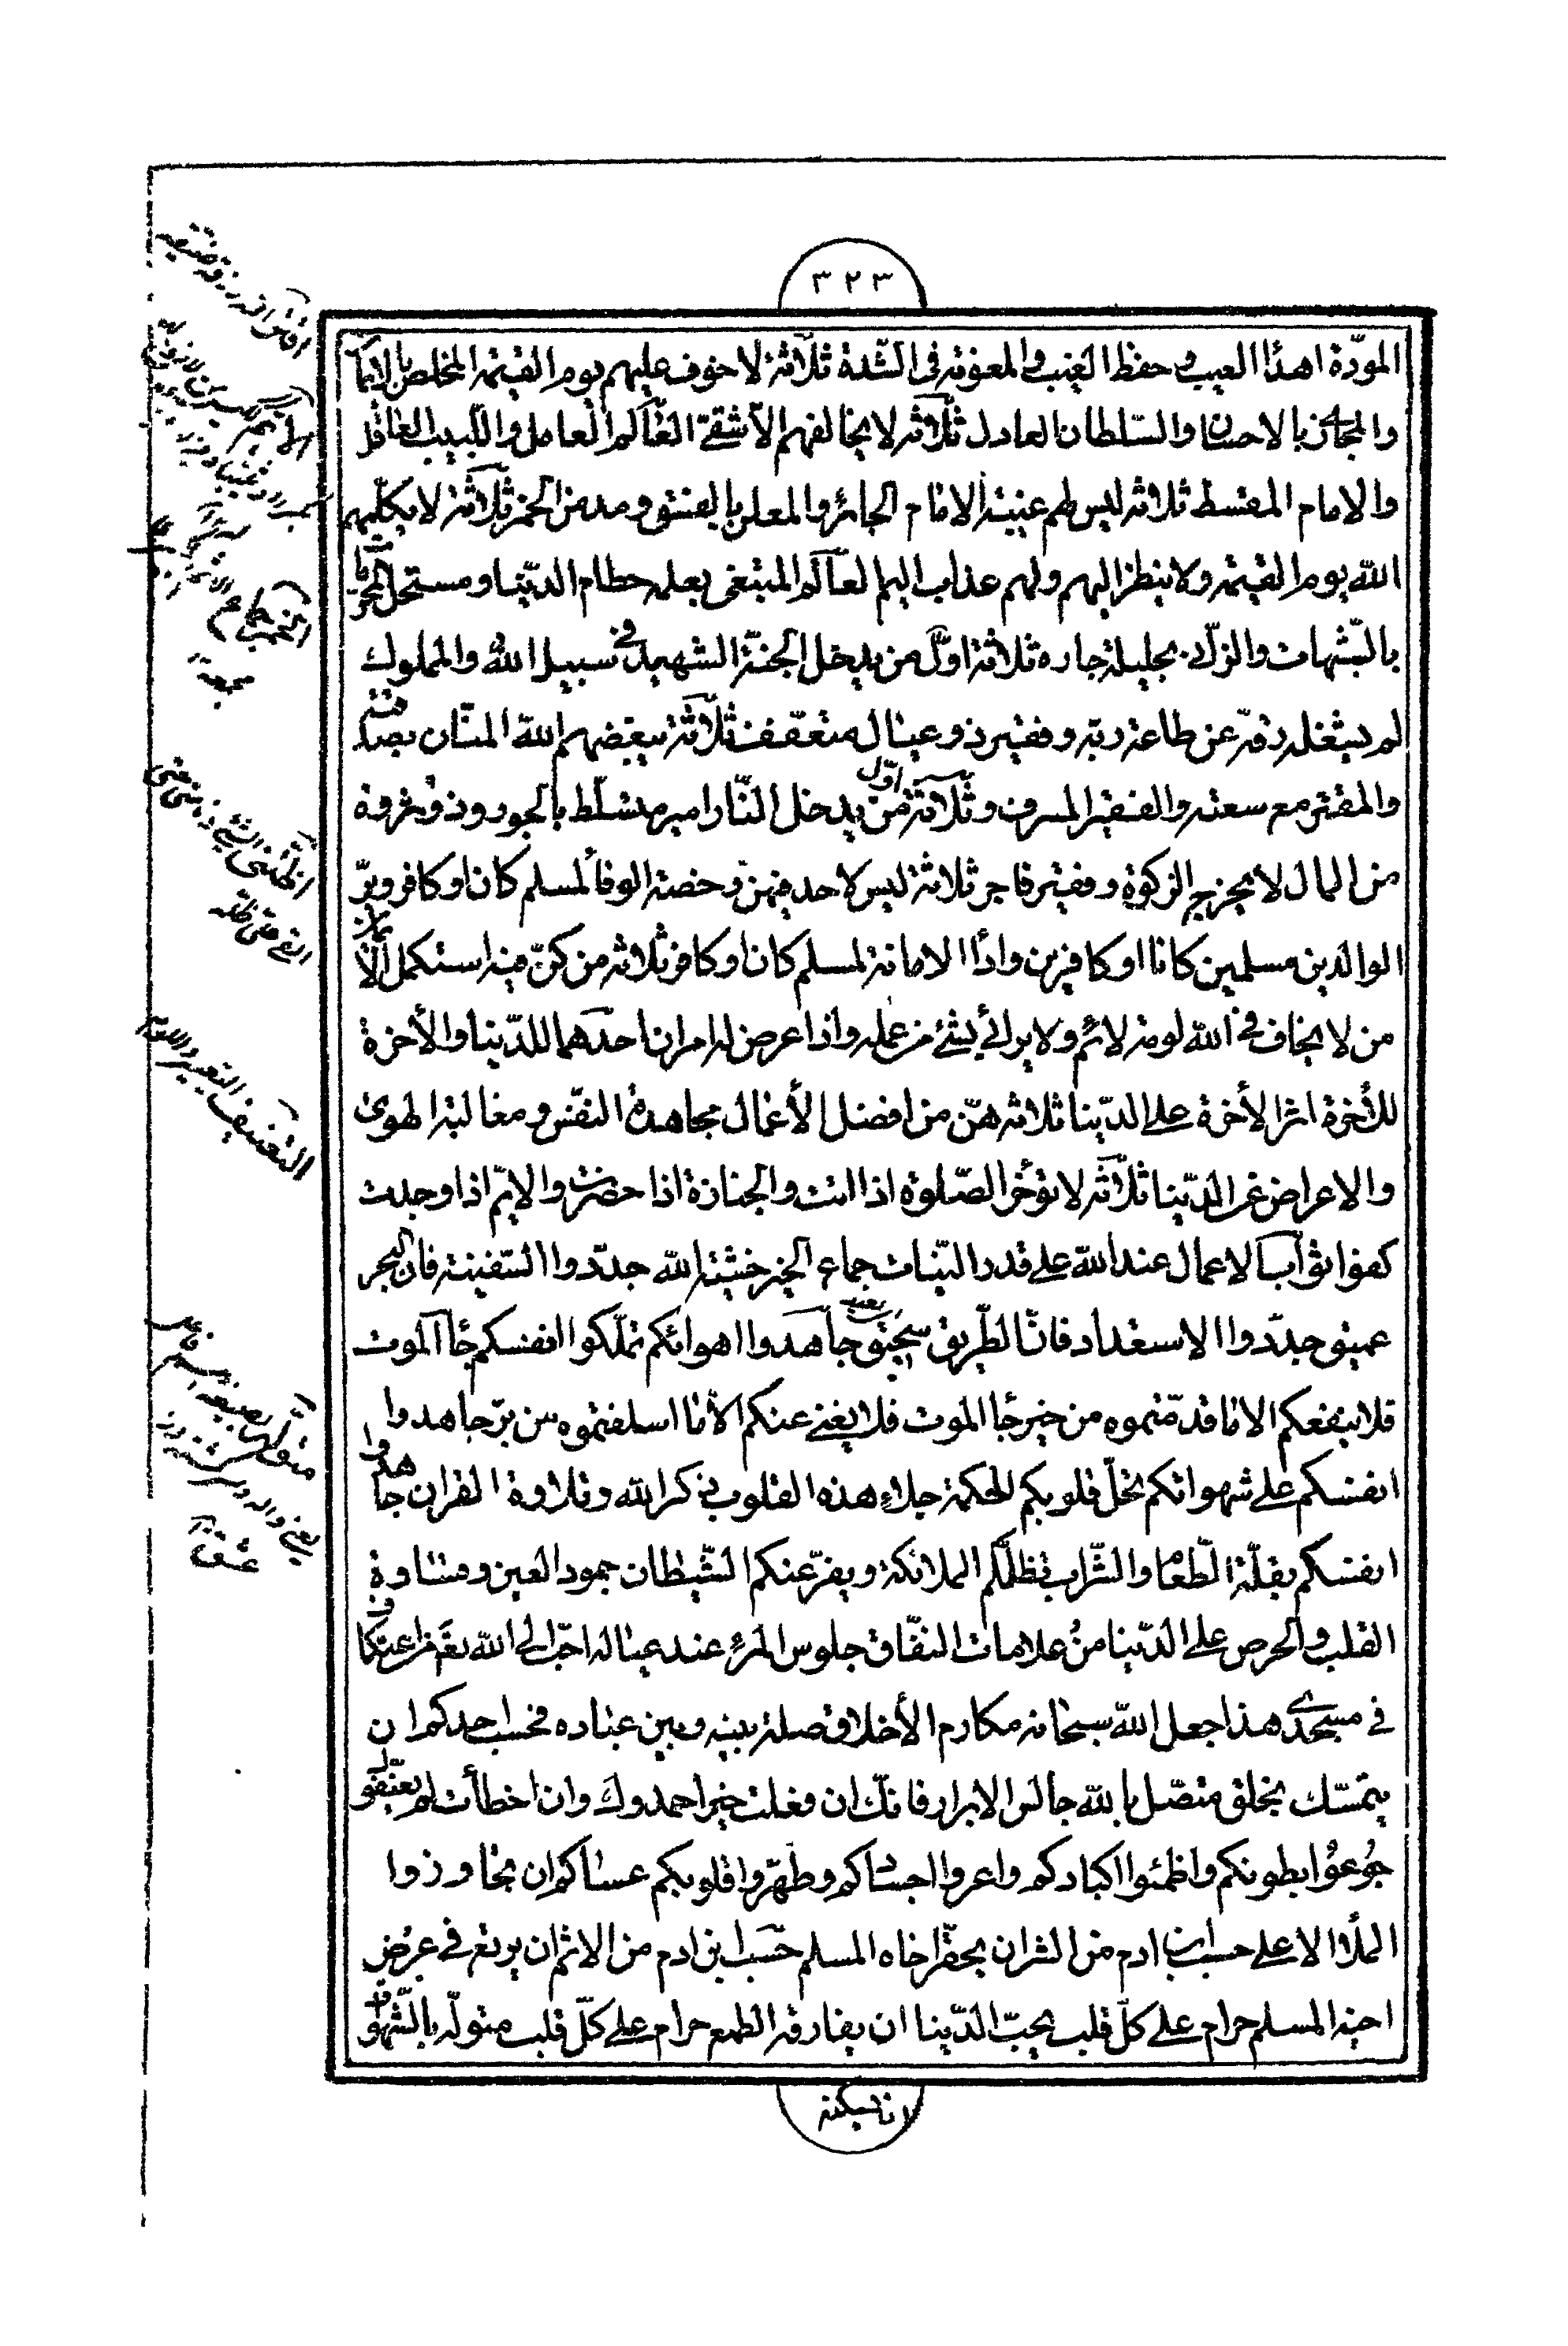 ٣٢٣
المودّة اهداء العيب و حفظ الغيب و المعونة فى الشّدة ثلاثة لا خوف عليهم يوم القيٰمة المخلص بالايمان
والمجازى بالاحسان والسّلطان العادل ثلاثه لا يخالفهم الّا شقىّ العٰالم العامل واللّبيب العاقل
والامام المقسط ثلاثه ليس لهم غيبة الامام الجائر والمعلن بالفسق ومدمن الخمر ثلاثة لا يكلّمهم
الله يوم القيٰمة ولا ينظر اليهم ولهم عذاب اليم العالم المبتغى بعلمه حطام الدّنيا ومستحلّ المحرّمات
بالشّبهات والزّانى بحليلة جاره ثلاثة اوّل من يدخل الجنّة الشهيد فى سبيل الله والمملوك
لم يشغله رقّه عن طاعة ربّه وفقير ذو عيال متعفّف ثلاثة يبغضهم الله المنّان بصدقته
والمقتر مع سعته والفقير المسرف وثلاثة اوّل من يدخل النّار امير متسلّط بالجور وذو ثروة
من المال لا يخرج الزكوة وفقير فاجر ثلاثة ليس لاحد فيهنّ رخصة الوفا لمسلم كان او كافر وبرّ
الوالدين مسلمين كانا او كافرين واداء الامانة لمسلم كان او كافر ثلاثه من كنّ فيه استكمل الايمان
من لا يخاف فى الله لومة لائم ولا يرائى بشئ من عمله واذا عرض له امران احدهما للدّنيا والأخرة
للأخرة اثر الأخرة على الدّنيا ثلاثه هنّ من افضل الأعمال مجاهدة النفس ومغالبة الهوىٰ
والاعراض عن الدّنيا ثلاثه لا تؤخّر الصّلوة اذا اتت والجنازة اذا حضرت والايّم اذا وجدت
كفوا ثواب الاعمال عند الله على قدر النيّات جماع الخير خشية الله جدّدوا السّفينة فان البحر
عميق جدّدوا الاستعداد فانّ الطّريق بعيد سحيق جاهدوا اهوائكم تملّكوا انفسكم جاء الموت
فلا ينفعكم الا ما قدّمتموه من خير جاء الموت فلا يغنى عنكم الّا ما اسلفتموه من برّ جاهدوا
انفسكم على شهواتكم تحلّ قلوبكم الحكمة جلاء هذه القلوب ذكر الله وتلاوة القران جاهدوا
انفسكم بقلّة الطّعام والشّراب تظلّكم الملائكة ويفرّ عنكم الشّيطان جمود العين وقساوة
القلب والحرص على الدّنيا من علامات النفاق جلوس المرء عند عياله احبّ الى الله تعٰ من اعتكاف
فى مسجدى هذا جعل الله سبحانه مكارم الأخلاق صلة بينه وبين عباده فحسب احدكم ان
يتمسّك بخلق متصّل بالله جالس الابرار فانك ان فعلت خيرا حمدوك وان اخطأت لم يعنّفوك
جوعوا بطونكم واظمئوا اكبادكم واعروا اجسادكم وطهّروا قلوبكم عساكم ان تجاوزوا
الملأ الاعلى حسب ابن ادم من الشر ان يحقّر اخاه المسلم حسب ابن ادم من الاثم ان يرتع فى عرض
اخيه المسلم حرام على كلّ قلب يحبّ الدّنيا ان يفارقه الطمع حرام على كلّ قلب متولّه بالشّهوات
ان تسكنه
التعنيف التعيير واللوم